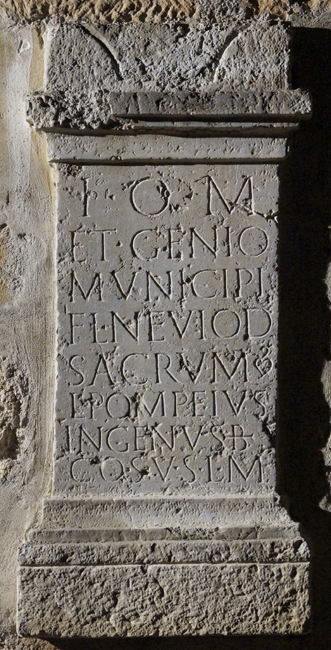 I O M
ET GENIO
MVNICIPI
FL NEVIOD
SACRVM
L POMPEIVS
INGENVS B
COS V S L M